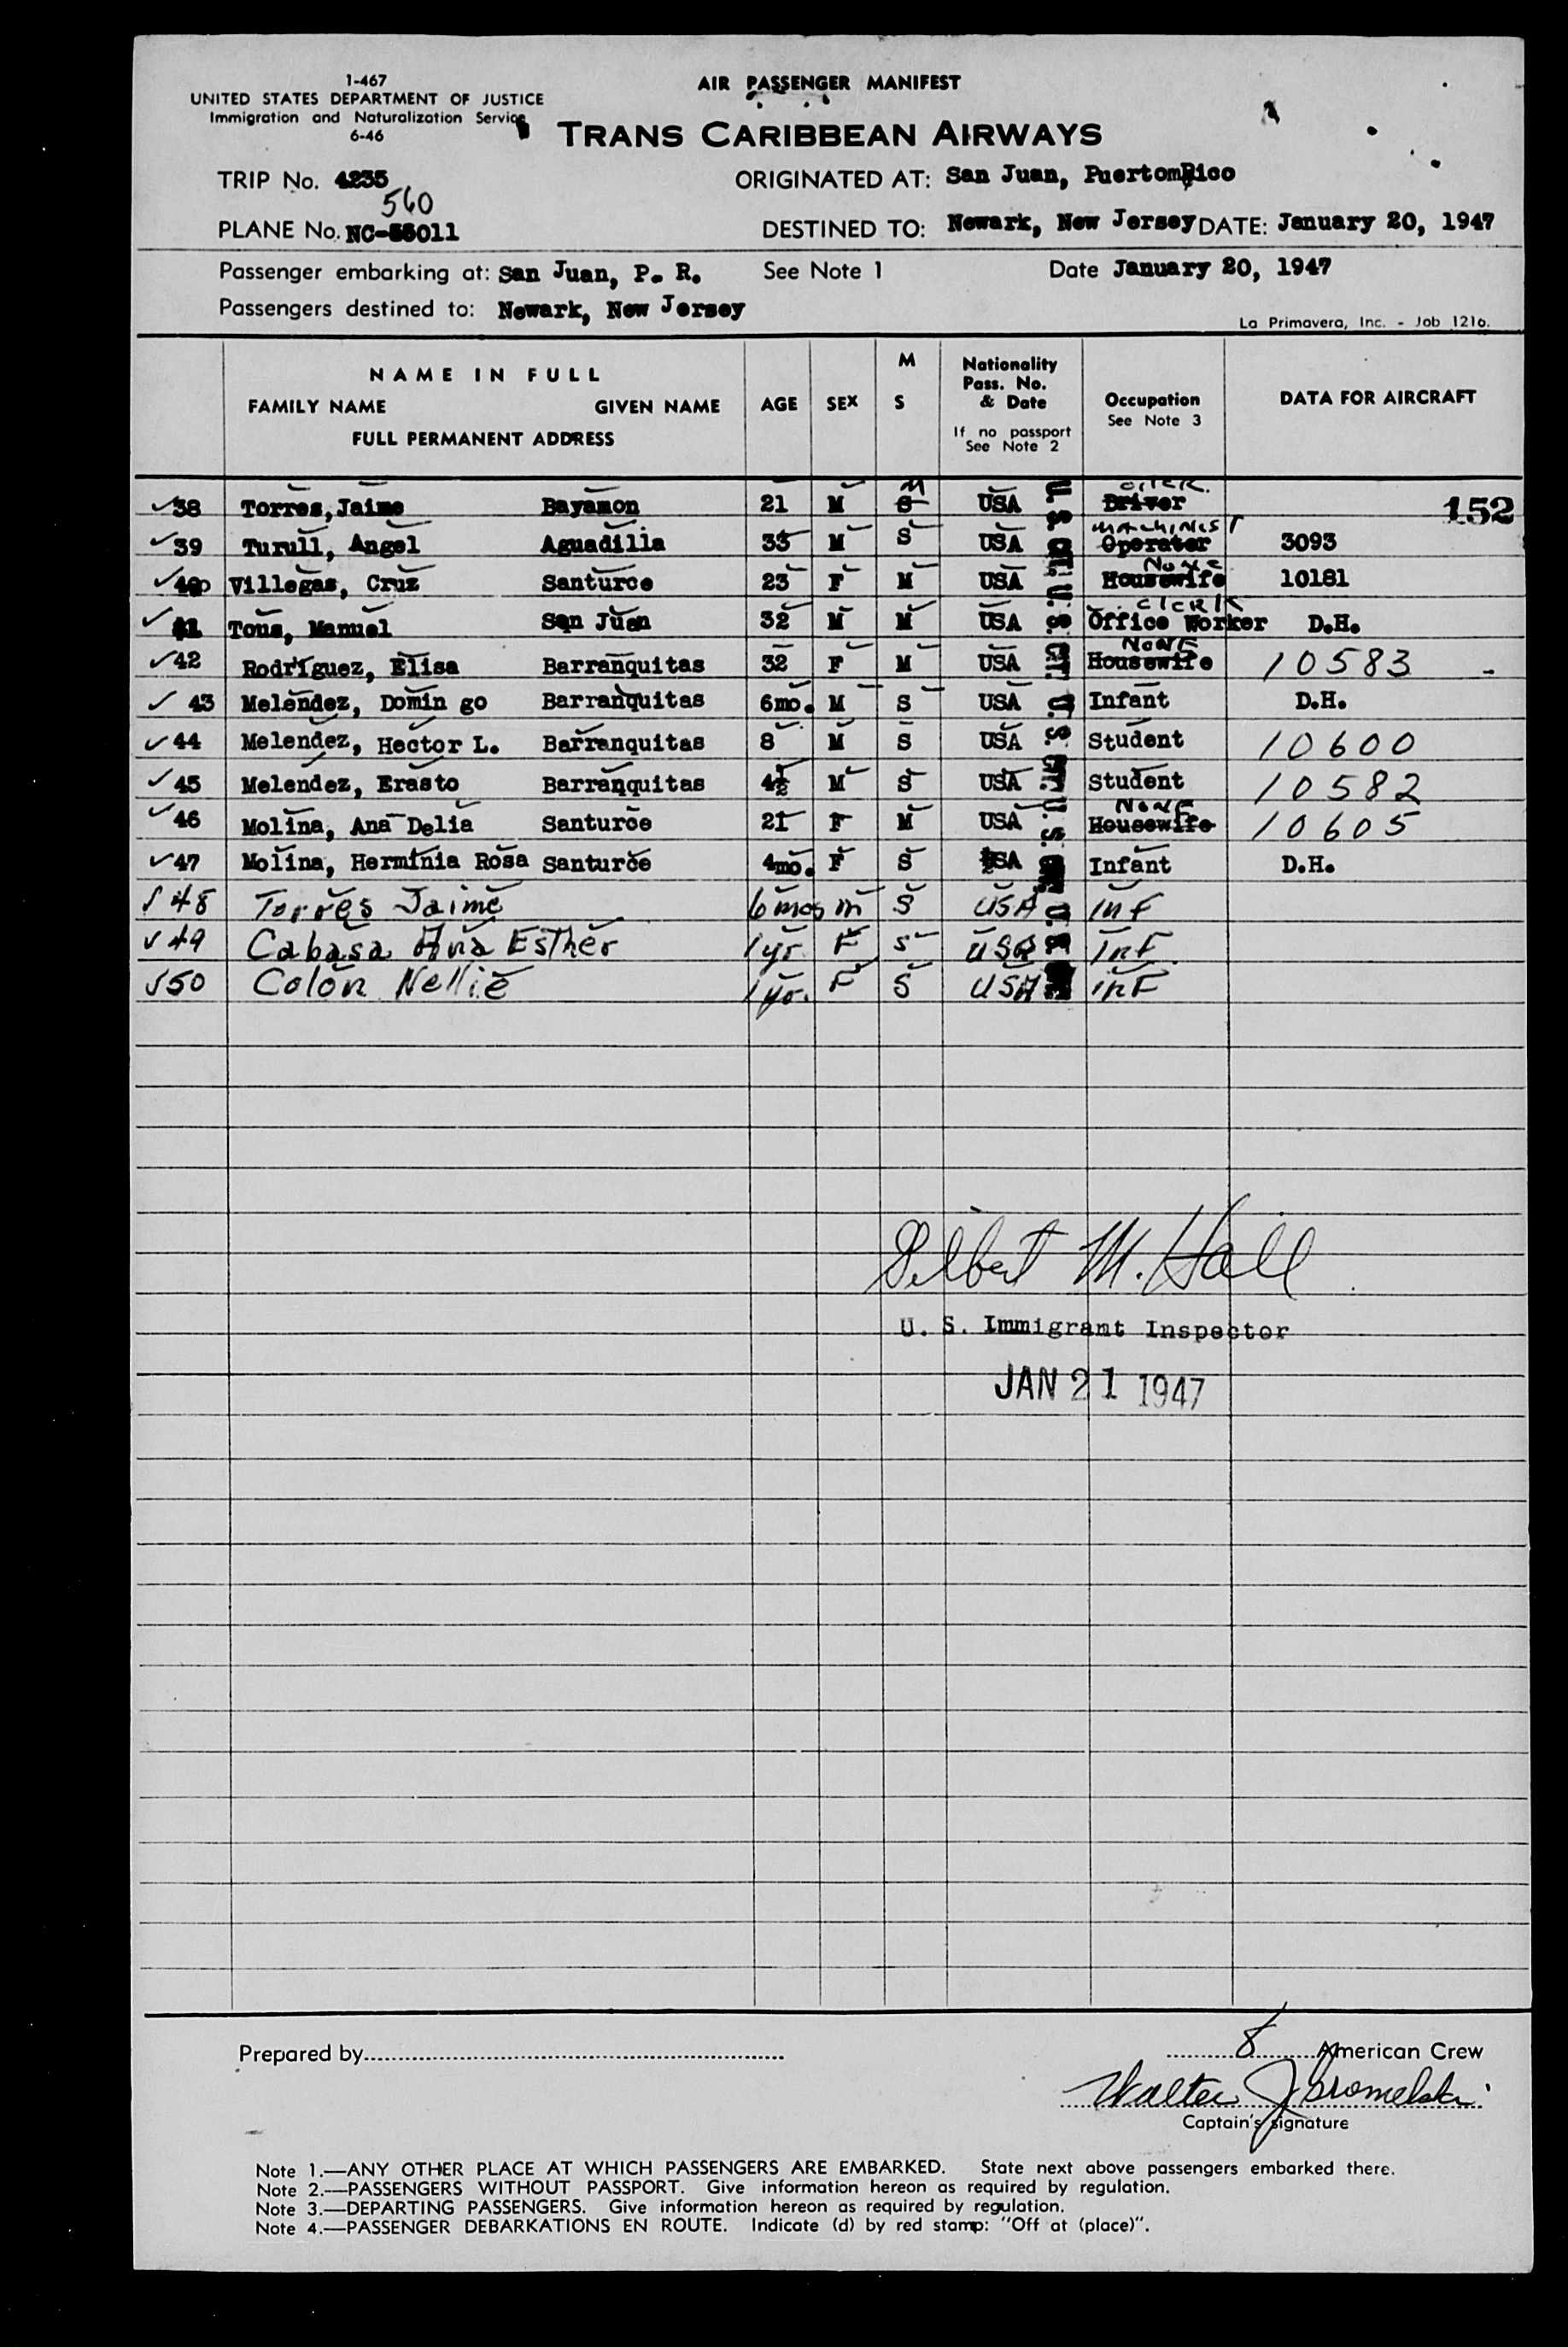 1-467
UNITED STATES DEPARTMENT OF JUSTICE
Immigration and Naturalization Service
6-46
AIR PASSENGER MANIFEST
TRANS CARIBBEAN AIRWAYS
TRIP No. 4235
ORIGINATED AT: San Juan, PuertomRico
560
PLANE No. NC-56011
DESTINED TO: Newark, New Jersey DATE: January 20, 1947
Passenger embarking at: San Juan, P. R. See Note 1 Date January 20, 1947
Passengers destined to: Newark, New Jersey
La Primavera, Inc. - Job 1216.
NAME IN FULL
FAMILY NAME GIVEN NAME
FULL PERMANENT ADDRESS
AGE
SEX
M
S
Nationality
Pass. No.
& Date
If no passport
See Note 2
Occupation
See Note 3
DATA FOR AIRCRAFT
M OILER.
38 Torres, Jaime Bayamon 21 M S USA Driver 152
MACHINIST
39 Turull, Angel Aguadilla 35 M S USA Operator 3093
NONE
40 Villegas, Cruz Santurce 23 F M USA Housewife 10181
CLERK
41 Tous, Manuel San Juan 32 M M USA Office Worker D.H.
NONE
42 Rodriguez, Elisa Barranquitas 32 F M USA Housewife 10583
43 Melendez, Domin go Barranquitas 6mo. M S USA Infant D.H.
44 Melendez, Hector L. Barranquitas 8 M S USA Student 10600
45 Melendez, Erasto Barranquitas 4½ M S USA Student 10582
NONE
46 Molina, Ana Delia Santurce 21 F M USA Housewife 10605
47 Molina, Herminia Rosa Santurce 4mo. F S USA Infant D.H.
48 Torres Jaime 6 mos m S USA INF
49 Cabasa Ana Esther 1 yr. F S USA INF.
50 Colon Nellie 1 yr. F S USA INF
U. S. CIT. U. S. CIT. U. S. CIT. U. S.
Gilbert M. Hall
U. S. Immigrant Inspector
JAN 21 1947
Prepared by
8 American Crew
Walter
Captain's signature
Note 1.—ANY OTHER PLACE AT WHICH PASSENGERS ARE EMBARKED. State next above passengers embarked there.
Note 2.—PASSENGERS WITHOUT PASSPORT. Give information hereon as required by regulation.
Note 3.—DEPARTING PASSENGERS. Give information hereon as required by regulation.
Note 4.—PASSENGER DEBARKATIONS EN ROUTE. Indicate (d) by red stamp: "Off at (place)".